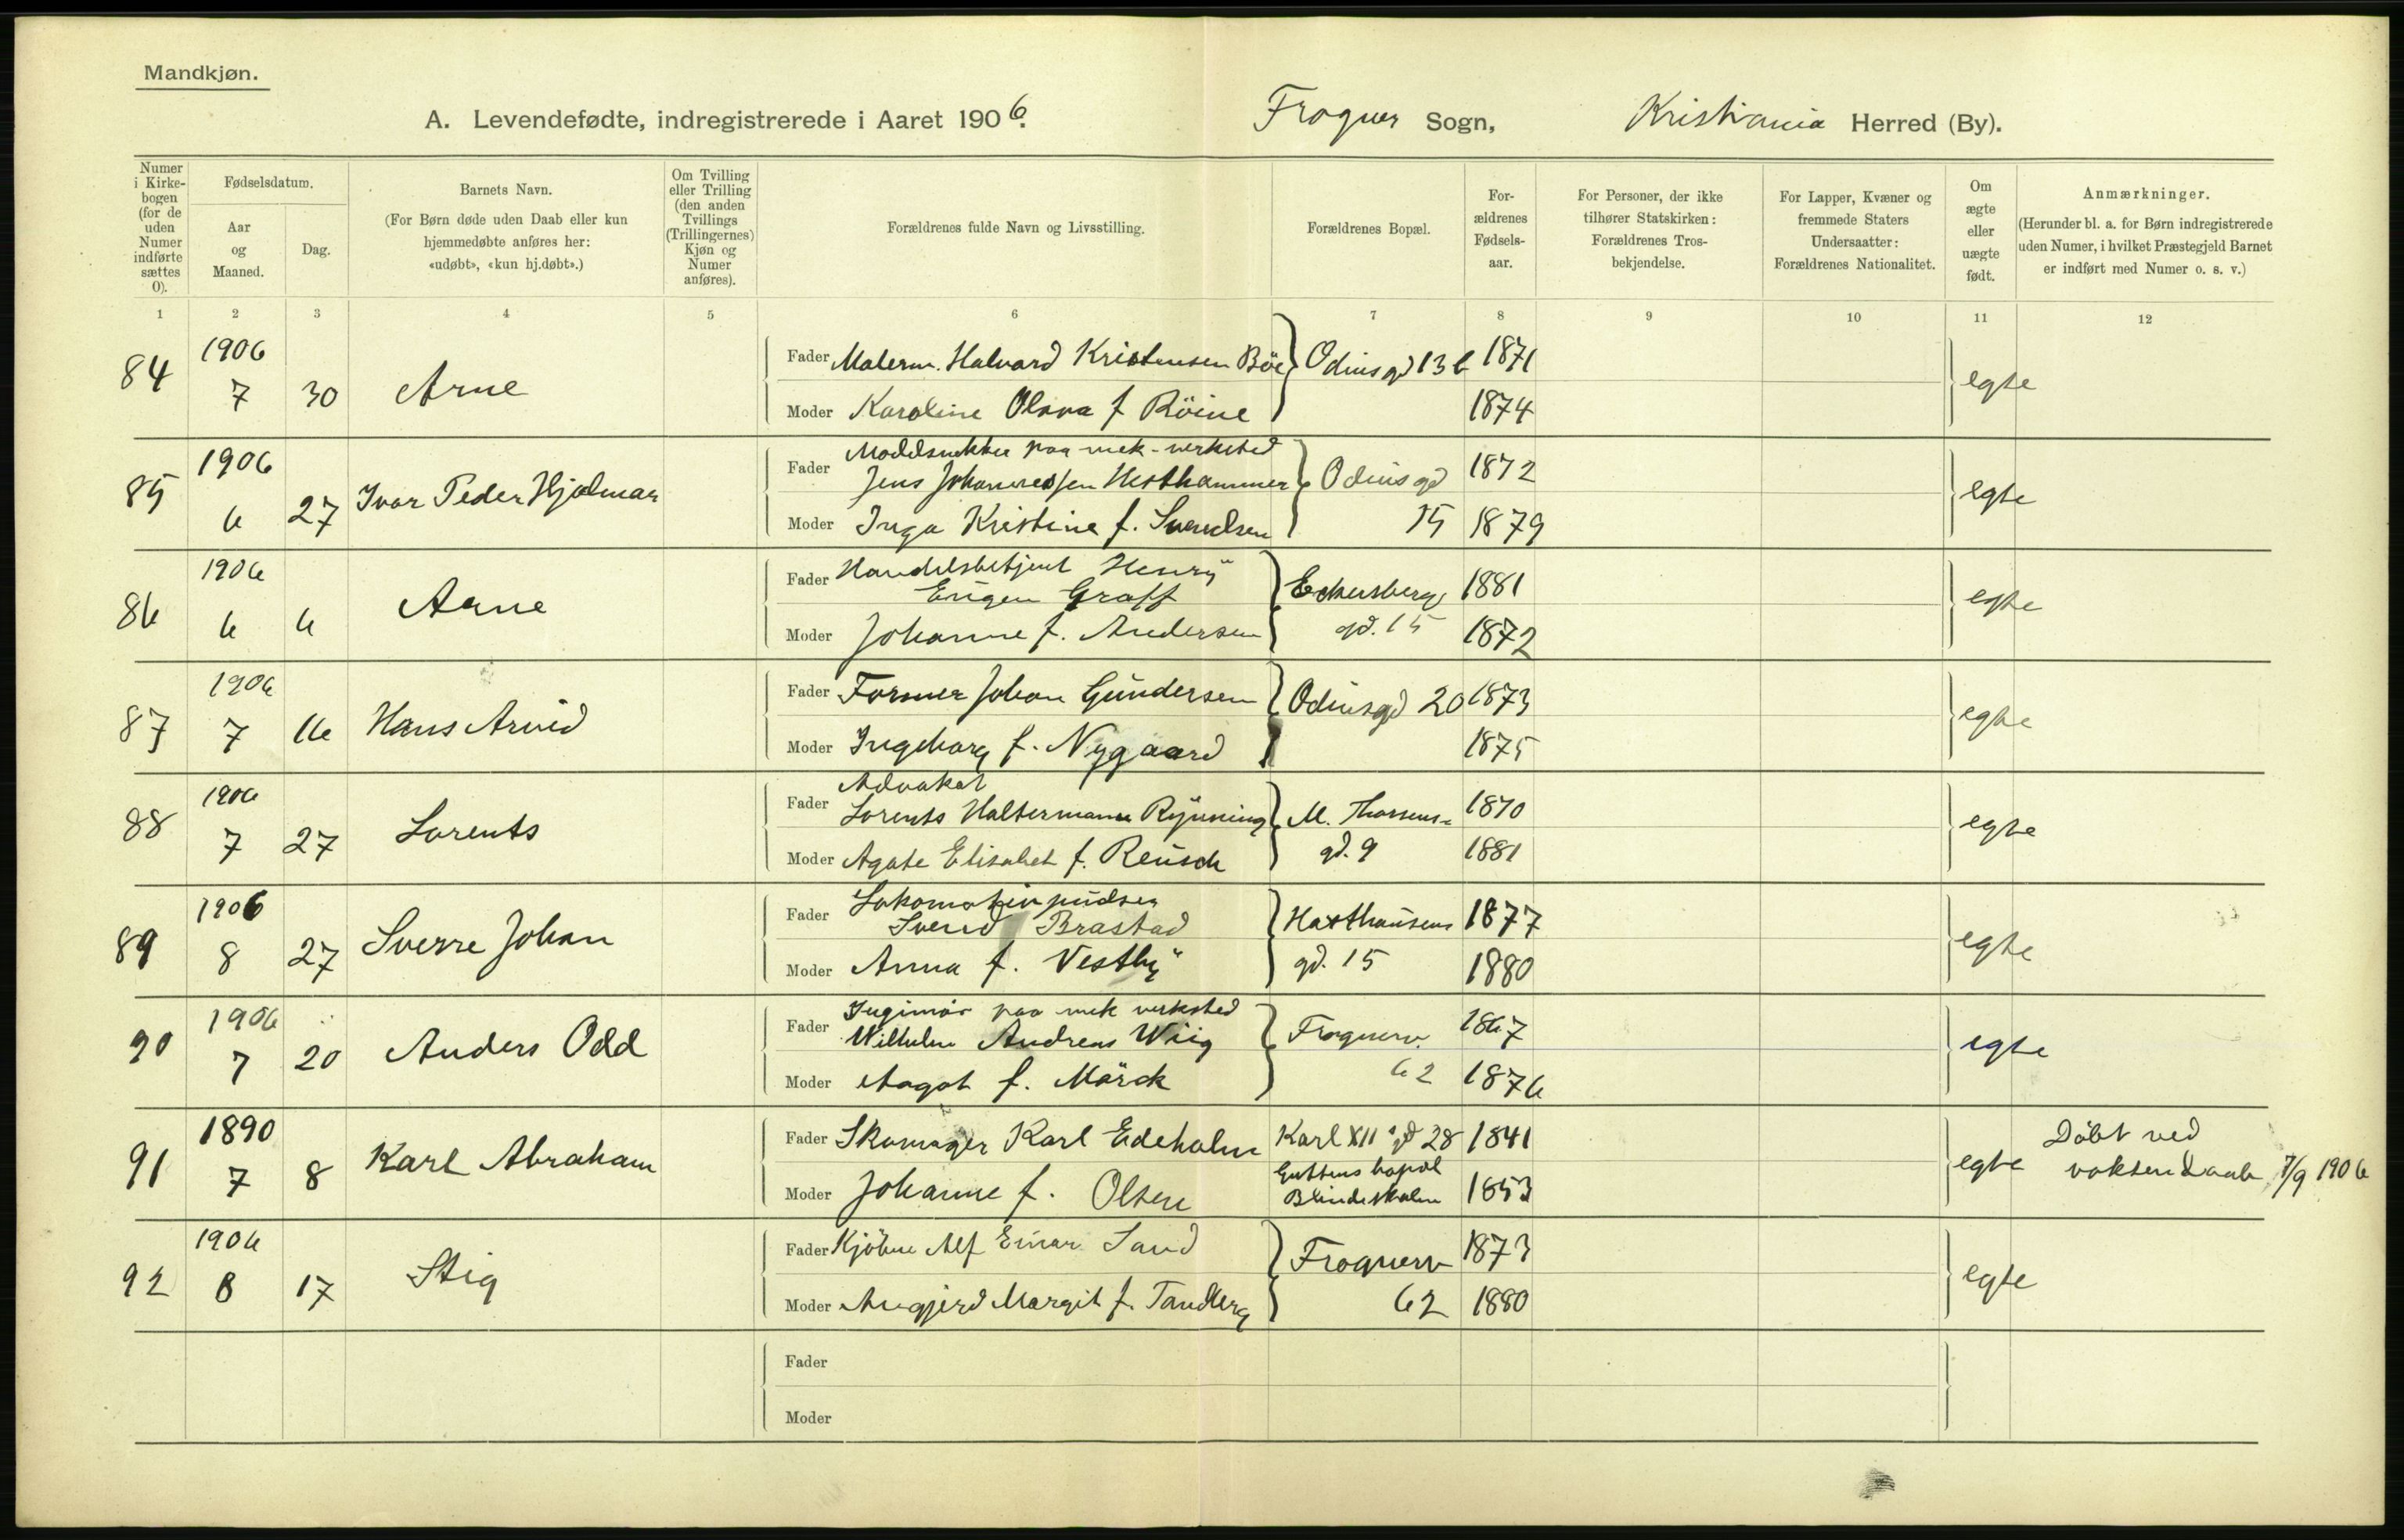 Mandkjøn.
A. Levendefødte, indregistrerede i Aaret 1906. Frogner Sogn, Kristiania Herred (By).
Numer i Kirke-bogen (for de uden Numer indførte sættes 0).
Fødselsdatum.
Aar og Maaned.
Dag.
Barnets Navn.
(For Børn døde uden Daab eller kun hjemmedøbte anføres her: «udøbt», «kun hj.døbt».)
Om Tvilling eller Trilling (den anden Tvillings (Trillingernes) Kjøn og Numer anføres).
Forældrenes fulde Navn og Livsstilling.
Forældrenes Bopæl.
For-ældrenes Fødsels-aar.
For Personer, der ikke tilhører Statskirken: Forældrenes Tros-bekjendelse.
For Lapper, Kvæner og fremmede Staters Undersaatter: Forældrenes Nationalitet.
Om ægte eller uægte født.
Anmærkninger.
(Herunder bl. a. for Børn indregistrerede uden Numer, i hvilket Præstegjeld Barnet er indført med Numer o. s. v.)
1 2 3 4 5 6 7 8 9 10 11 12
84 1906 7 30 Arne
Fader Malerm. Halvard Kristensen Böe Odinsgd 13 b 1871
Moder Karoline Olava f Röine 1874
egte
85 1906 6 27 Ivar Peder Hjalmar
Modelsnekker paa mek-verksted
Fader Jens Johannessen Hesthammer Odinsgd 1872
Moder Inga Kristine f. Svendsen 15 1879
egte
86 1906 6 6 Arne
Fader Handelsbetjent Henry
Eugen Graff Eckersbergs 1881
Moder Johanne f. Andersen gd. 15 1872
egte
87 1906 7 16 Hans Arvid
Fader Former Johan Gundersen Odinsgd 20 1873
Moder Ingeborg f. Nygaard 1875
egte
88 1906 7 27 Lorents
Advokat
Fader Lorents Haltermann Rynning M. Thoresens- 1870
Moder Agate Elisabet f. Reusch gd. 9 1881
egte
89 1906 8 27 Sverre Johan
Lokomotivpudser
Fader Svend Brastad Haxthausens 1877
Moder Anna f. Vestby gd. 15 1880
egte
90 1906 7 20 Anders Odd
Ingeniör paa mek verksted
Fader Wilhelm Andreas Wiig Frognerv. 1867
Moder Aagot f. Mörck 62 1876
egte
91 1890 7 8 Karl Abraham
Fader Skomager Karl Edeholm Karl XII's gd 28 1841
Moder Johanne f. Olsen Guttens bopæl Blindeskolen 1853
egte Döbt ved voksendaab 7/9 1906
92 1906 8 17 Stig
Fader Kjöbm Alf Einar Sand Frognerv 1873
Moder Margit f. Tandberg 62 1880
egte
Fader
Moder